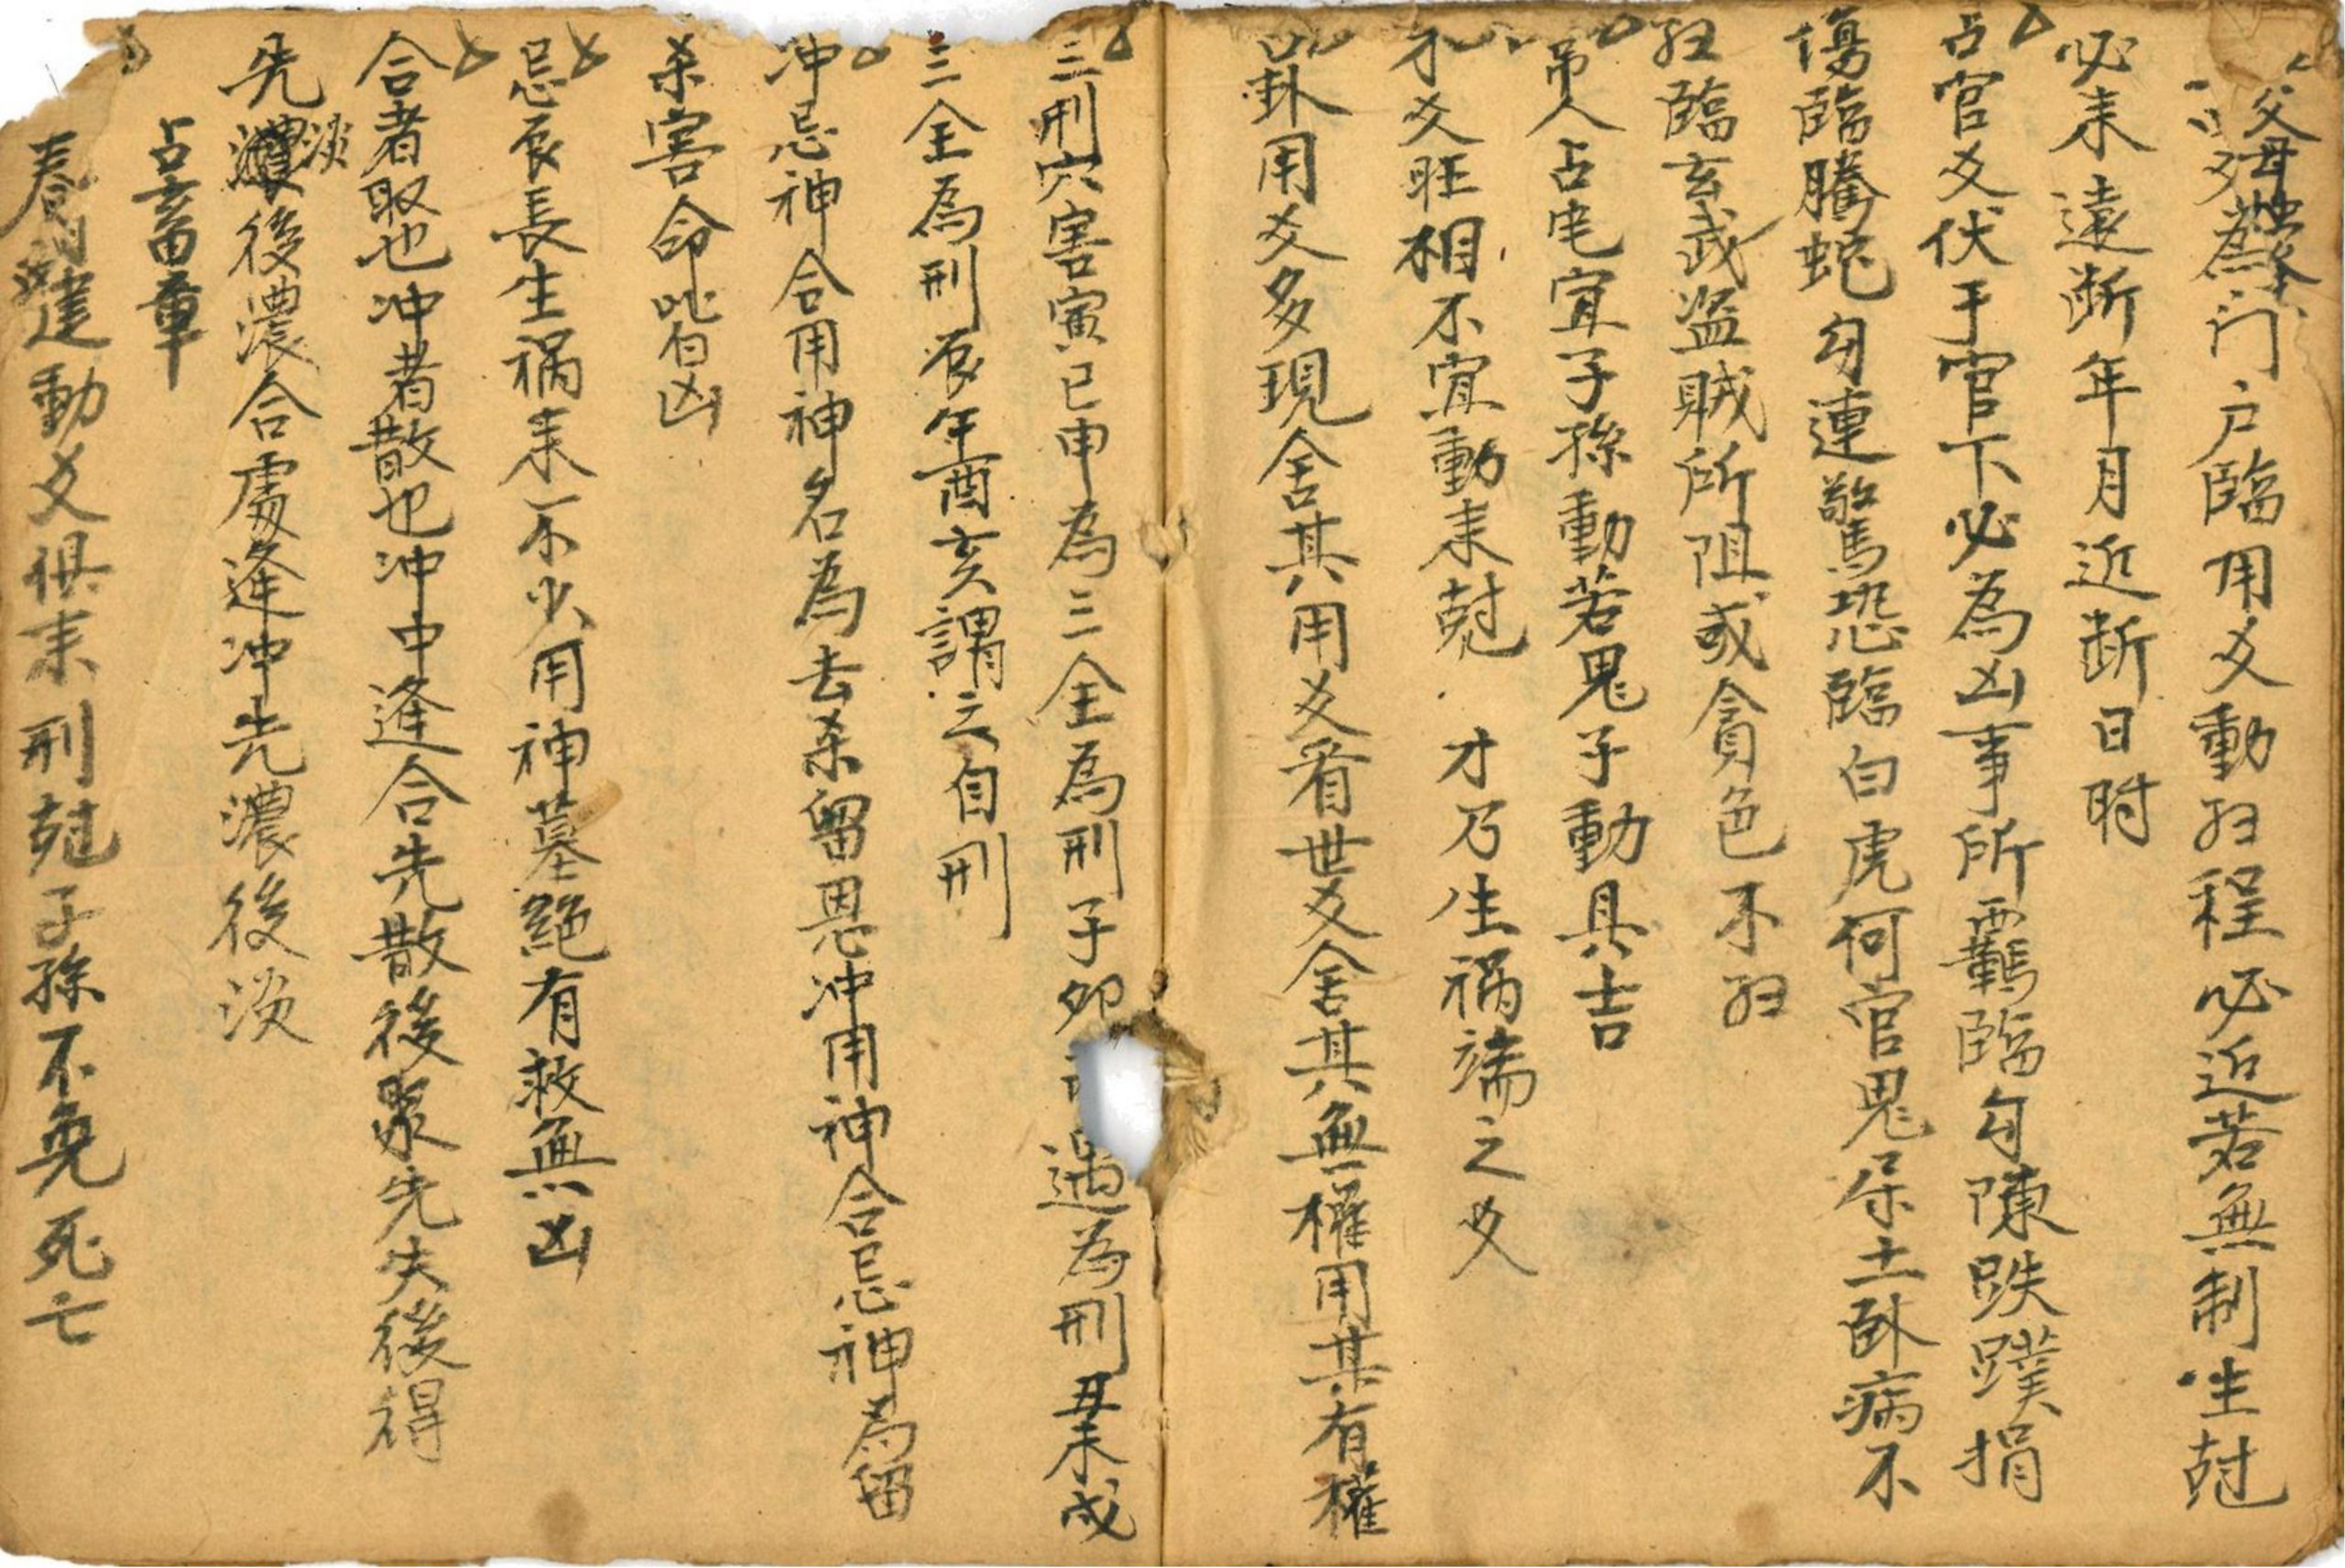 父母墓絡
爻為门户臨用爻動归程必近若無制生尅
必耒遠断年月近断日时
占官爻伏于官下必為凶事所羈臨勾陳跌蹼捐
傷臨騰蛇勾連驚恐臨白虎何官鬼屬土卧病不
归臨玄武盗賊所阻或貪色不归
吊人占宅宜子孫動若鬼子動具吉
才爻旺相不宜動耒尅 才乃生禍端之爻
卦用爻多現舍其用爻看世爻舍其無權用其有權
三刑六害寅巳申為三全為刑子卯 遇為刑丑未戌
三全為刑辰午酉亥謂之自刑
冲忌神合用神名為去杀留恩冲用神合忌神為留
杀害命此旨凶
忌辰長生禍耒不少用神墓絕有救無凶
合者聚也冲者散也冲中逢合先散後聚先失後得
先淡後濃合處逢冲先濃後淡
占畜章
春月建動爻俱耒刑尅子孫不免死亡